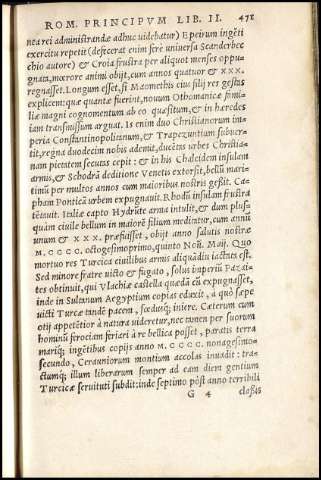 ROM. PRINCIPVM LIB. II. 471
nea rei administrandæ adhuc videbatur) Epeirum ingẽti
exercitu repetit (defecerat enim ferè universa Scanderbec
chio autore) & Croia frustra per aliquot menses oppu-
gnata, mœrore animi obijt, cum annos quatuor & XXX.
regnasset. Longum esset, si Maomethis eius filij res gestas
explicem: quæ quantæ fuerint, nouum Othomanicæ fami-
liæ magni cognomentum ab eo quæsitum, & in hæredes
iam transmissum arguat. Is enim duo Christianorum im-
peria Constantinopolitanum, & Trapezuntium subuer-
tit, regna duodecim nobis ademit, ducẽtas urbes Christia-
nam pietatem secutas cepit: & in his Chalcidem insulam
armis, & Schodrã deditione Venetis extorsit, bellũ mari-
timũ per multos annos cum maioribus nostris gessit. Ca-
pham Ponticã urbem expugnauit. Rhodũ insulam frustra
tẽtauit. Italiæ capto Hydrũte arma intulit, & dum plus-
quàm ciuile bellum in maiorẽ filium meditatur, cum annũ
unum & XXX. præfuisset, obijt anno salutis nostræ
M. CCCC. octogesimoprimo, quinto Non. Maij. Quo
mortuo res Turcica ciuilibus armis aliquãdiu iactata est.
Sed minore fratre victo & fugato, solus imperiũ Pazai-
tes obtinuit, qui Vlachiæ castella quædã cũ expugnasset,
inde in Sultanum Aegyptium copias eduxit, a quo sæpe
uicti Turcæ tandẽ pacem, fœdusq; iniere. Cæterum cum
otij appetẽtior à natura videretur, nec tamen per suorum
hominũ ferociam feriari à re bellica posset, paratis terra
mariq; ingẽtibus copijs anno M. CCCC. nonagesimo-
secundo, Cerauniorum montium accolas inuadit: tra-
ctumq; illum liberarum semper ad eam diem gentium
Turcicæ seruituti subdit: inde septimo pòst anno terribili
G 4 classis